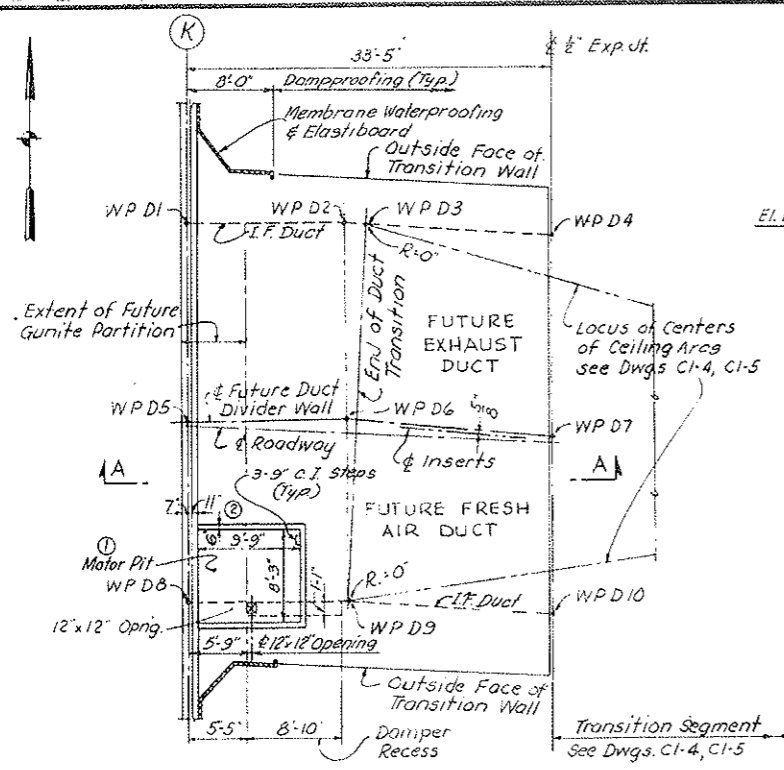 K
33'-5"
℄ ½" Exp. Jt.
8'-0"
Dampproofing (Typ.)
Membrane Waterproofing
& Elastiboard
Outside Face of
Transition Wall
WP D1
WP D2
WP D3
WP D4
El.
I.F. Duct
R=0"
Extent of Future
Gunite Partition
End of Duct
Transition
FUTURE
EXHAUST
DUCT
Locus of Centers
of Ceiling Arcs
see Dwgs C1-4, C1-5
℄ Future Duct
Divider Wall
WP D5
WP D6
WP D7
℄ Roadway
℄ Inserts
A
A
3-9" C.I. Steps
(Typ.)
7"
11"
②
FUTURE FRESH
AIR DUCT
6"
9'-9"
①
Motor Pit
8'-3"
1'-1"
R=0"
WP D8
I.F. Duct
WP D10
12"x12" Opng.
WP D9
5'-9"
℄ 12"x12" Opening
Outside Face of
Transition Wall
5'-5"
8'-10"
Damper
Recess
Transition Segment
See Dwgs. C1-4, C1-5